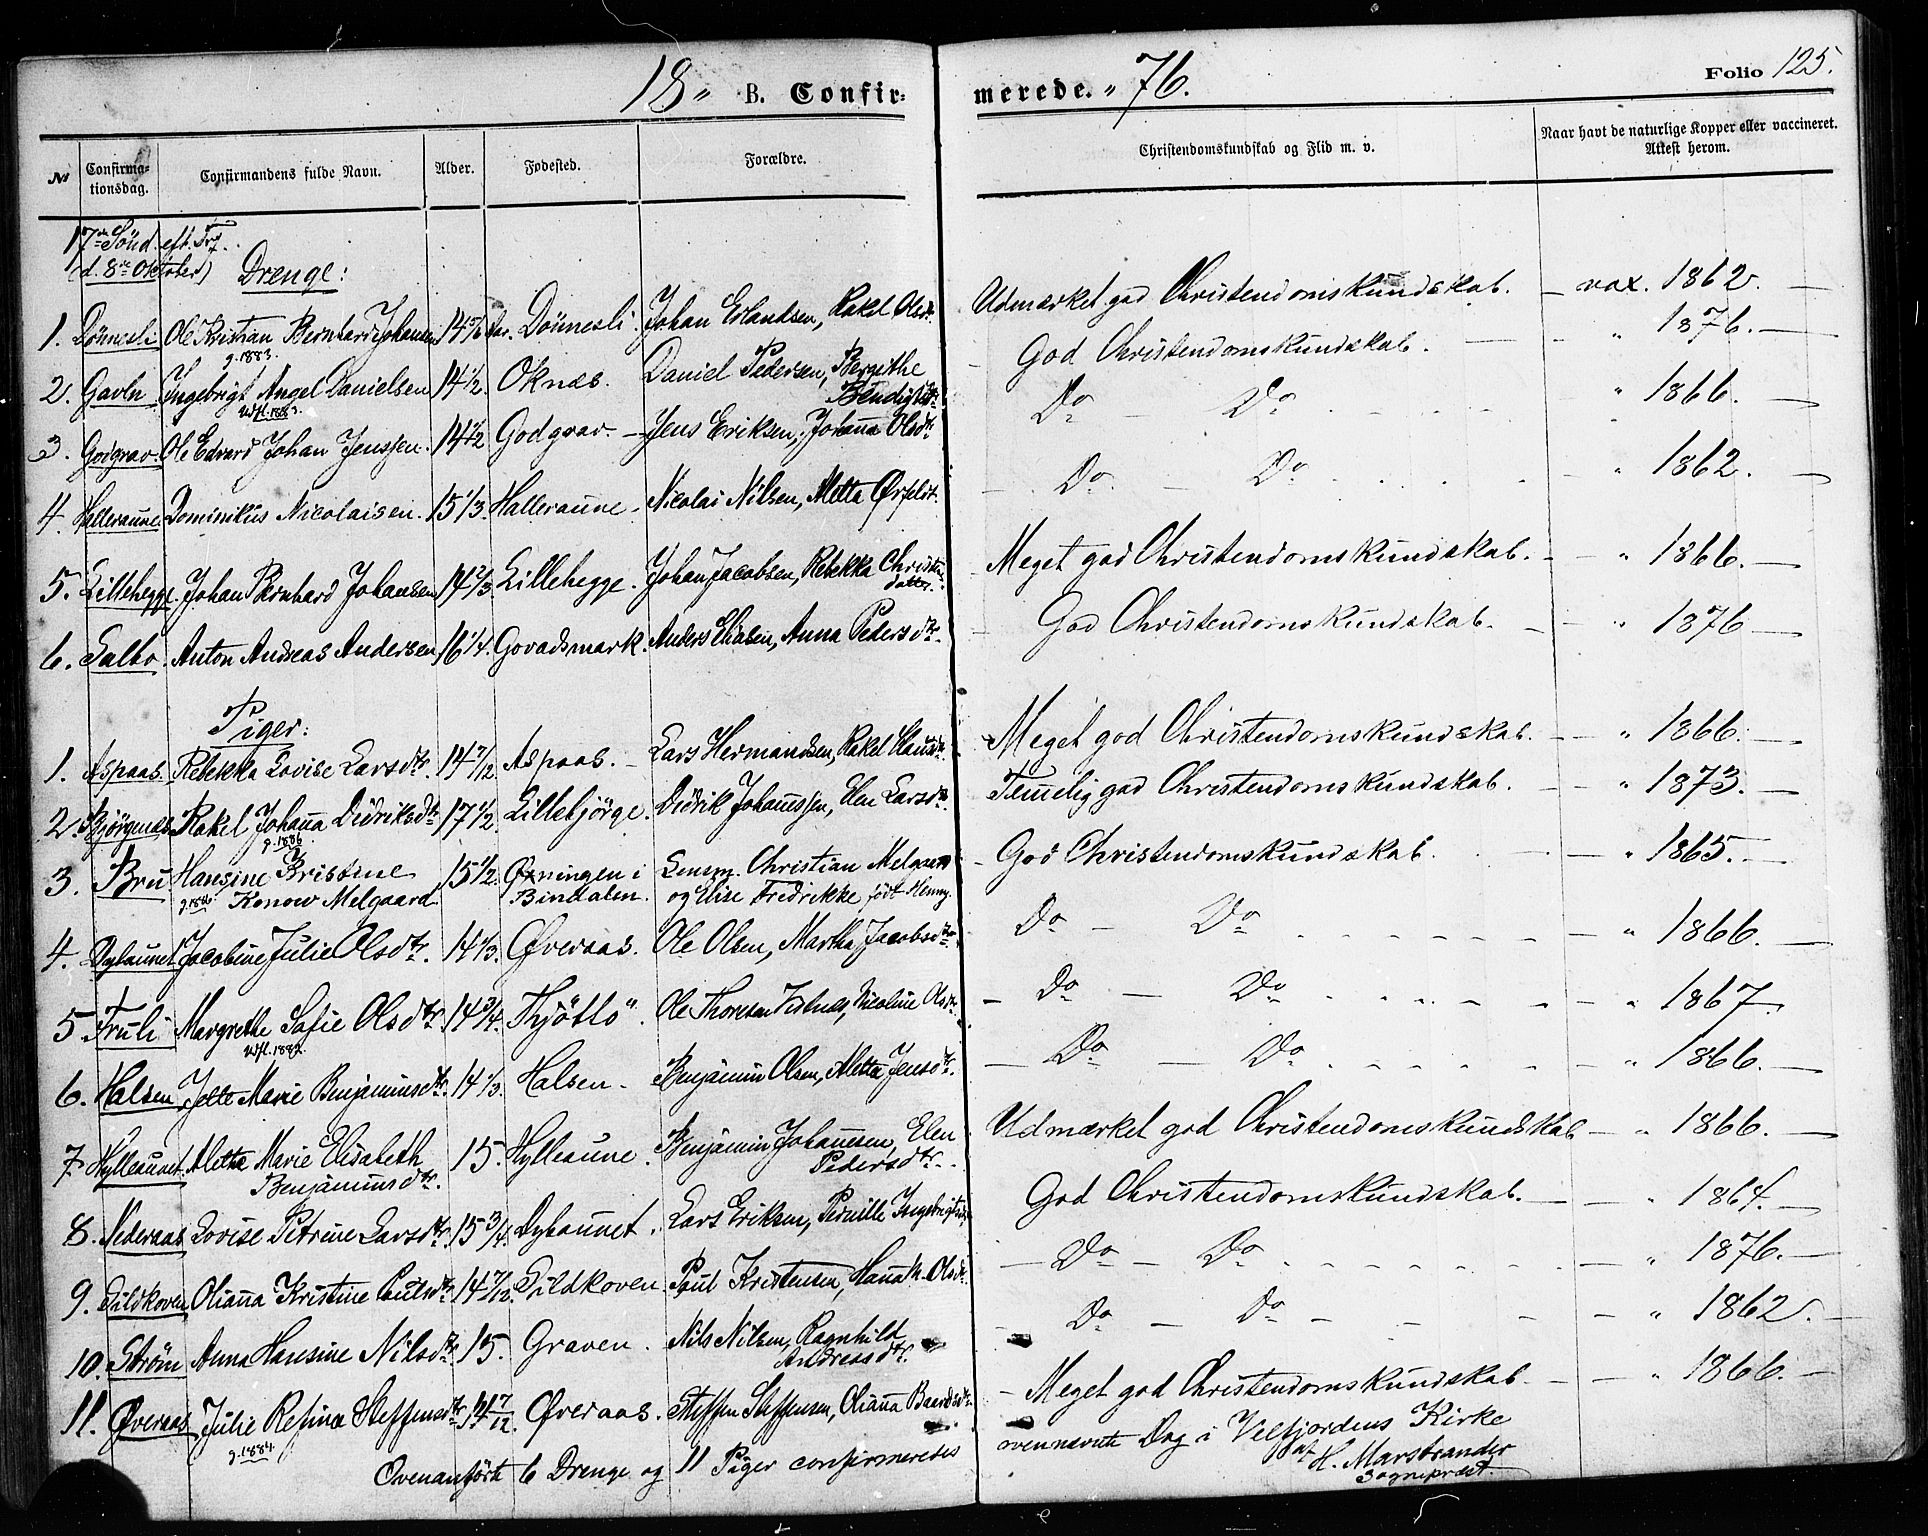 18 „ B. Confir- merede. „ 76. Folio 125.
№ Confirma-tionsdag. Confirmandens fulde Navn. Alder. Fødested. Forældre. Christendomskundskab og Flid m. v. Naar havt de naturlige Kopper eller vaccineret. Attest herom.
17de Sönd. eft. Tref.
(d. 8de Oktober) Drenge:
1. Dönnesli Ole Kristian Bernhard Johansen 14 5/6 Aar. Dönnesli. Johan Erlandsen, Rakel Olsdr. Udmærket god Christendomskundskab. — vax. 1862. —
g. 1883.
2. Gavln Ingebrigt Angel Danielsen 14 1/2 Oknæs. Daniel Pedersen, Bergithe Bendigtsdr. God Christendomskundskab. — „ 1876. —
Utfl. 1883.
3. Godgrav. Ole Edvard Johan Jenssen. 14 1/2 Godgrav. — Jens Eriksen, Johanna Olsdtr Do — Do „ 1866. —
4. Halleraune. Dominikus Nicolaisen. 15 1/3. Halleraune. Nicolai Nilsen, Metta — Do Do — „ 1862. —
5. Lillehegge. Johan Bernhard Johansen 14 2/3. Lillehegge. Johan Jacobsen, Rebekka Christens datter. Meget god Christendomskundskab. — „ 1866. —
6. Salbo. Anton Andreas Andersen 16 1/4. Govadsmark. Anders Eliasen, Anna Pedersdtr. — God Christendomskundskab. — „ 1876 —
Piger:
1. Aspaas. Rebekka Lovise Larsdtr. 14 7/12. Aspaas. — Lars Hermandsen, Rakel Hansdr. Meget god Christendomskundskab. — „ 1866. —
2. Bjørgenes Rakel Johanna Didriksdtr 17 1/2. Lillebjörge. Didrik Johannssen, Elen Larsdr. Temmelig god Christendomskundskab. — „ 1873. —
g. 1886.
3. Bru Hansine Kristine 15 1/2. Øxningen i Lensm. Christian Melgaard — God Christendomskundskab. — „ 1865. —
g. 1886 Konow Melgaard Bindalen. og Elise Fredrikke født Henny.
4. Dybaunet Jacobine Julie Olsdtr. 14 1/3. Øveraas. Ole Olsen, Martha Jacobsdtr. Do — Do — „ 1866. —
5. Fruli Margrethe Sofie Olsdtr. 14 3/4. Thjöttö. Ole Thoresen Nicoline Olsdr. — Do — Do — „ 1867.
Utfl. 1882.
6. Halsen Jelte Marie Benjaminsdtr. 14 1/3. Halsen. Benjamin Olsen, Metta Jensdtr. — Do — Do „ 1866. —
7. Hylleaunet. Metta Marie Elisabeth 15. Hylleaune. Benjamin Johannesen, Elen Udmærket god Christendomskundskab — „ 1866. —
Benjaminsdtr. Pedersdtr.
8. Nederaas Lovise Petrine Larsdtr. 15 3/4. Dybaunet. Lars Eriksen, Pernille Ingebrigtsdr. God Christendomskundskab. — „ 1864. —
9. Sildkoven. Olianna Kristine Paulsdtr. 14 7/12. Sildkoven. Paul Kristensen, Hanna K. Olsdr. — Do — Do — „ 1876. —
10. Ström Anna Hansine Nilsdtr. 15. Graven. Nils Nilsen, Ragnhild Andreasdtr. Do — Do — „ 1862. —
11. Øveraas. Julie Resina Steffensdtr 14 7/12. Øveraas. Steffen Steffensen, Olianna Baardsdtr. — Meget god Christendomskundskab — „ 1866. —
g. 1884.
Ovenanförte 6 Drenge og 11 Piger confirmeredes ovennævnte Dag i Velfjordens Kirke
af H. Marstrander
Sognepræst.